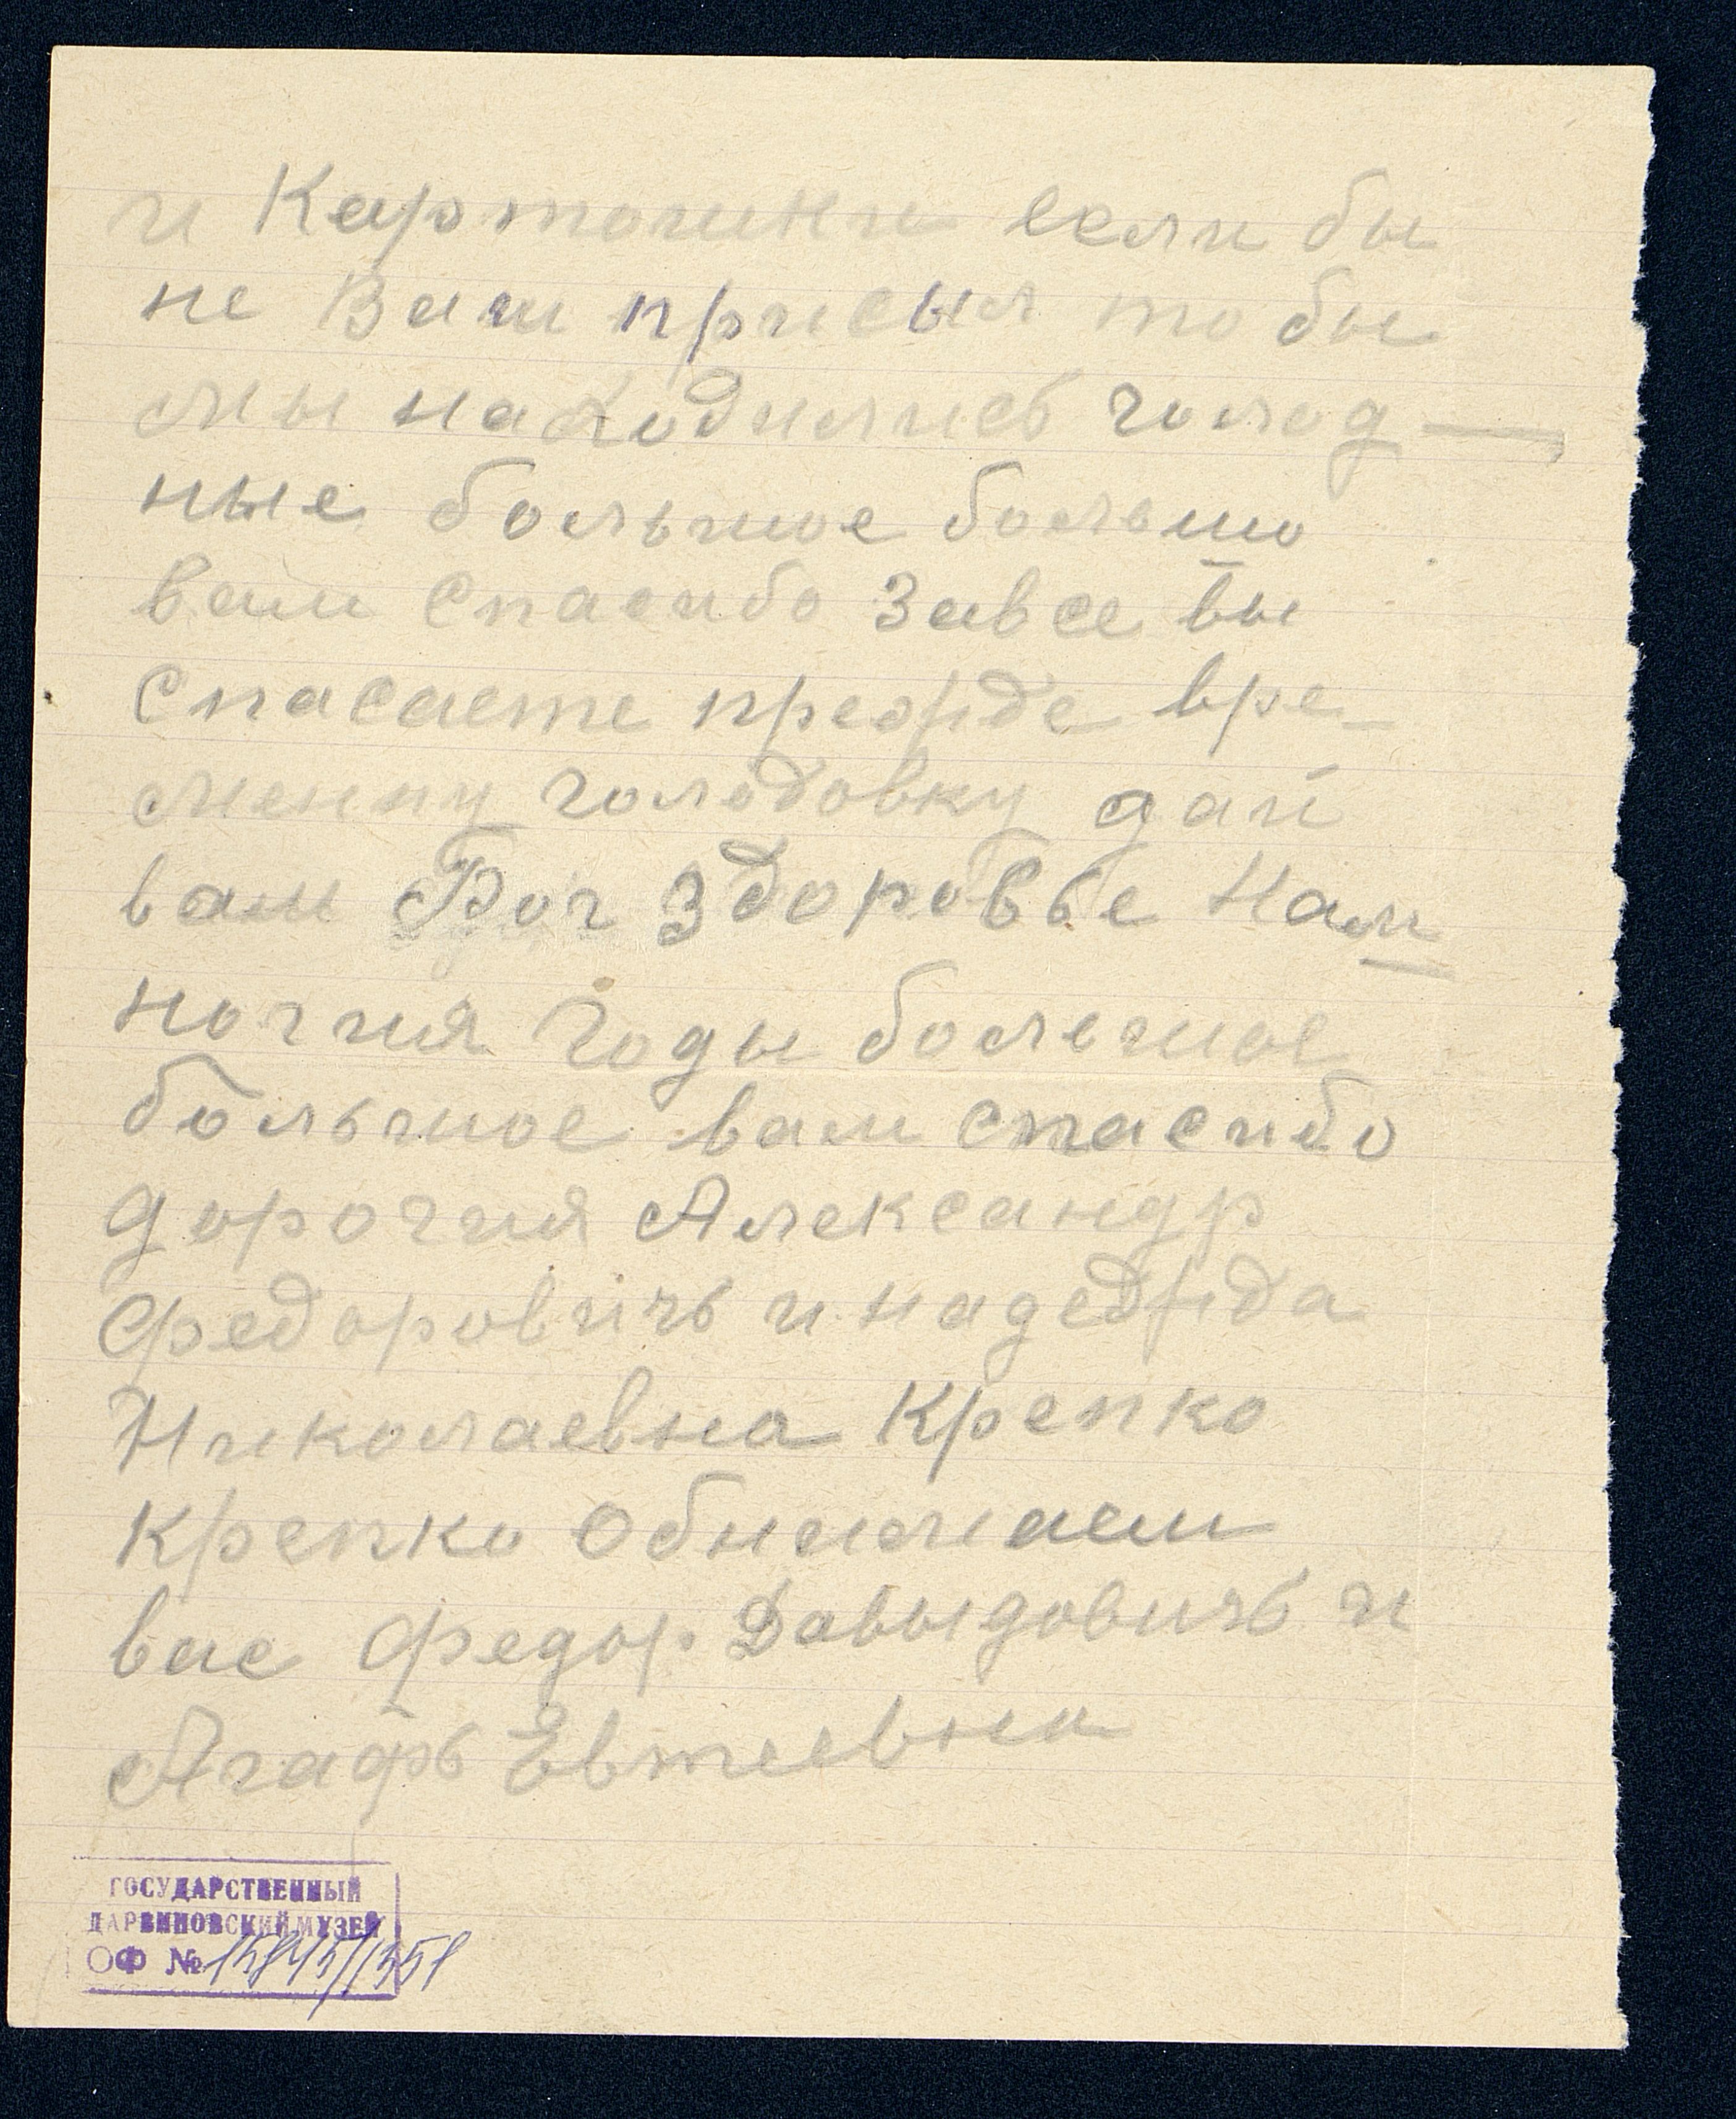 и Картошки если бы
не Ваш присыл то бы
мы находились голод—
ные большое большо
вам спасибо завсе вы
спасаете прежде вре-
менну голодовку дай
вам Бог здоровье нам
ногия годы большое
большое вам спасибо
дорогия Александр
Федоровичь и надежда
Николаевна Крепко
крепко обнимаем
вас Федор Давыдовичь и
Агафь Евтеевна
ГОСУДАРСТВЕННЫЙ
ДАРВИНОВСКИЙ МУЗЕЙ
ОФ №